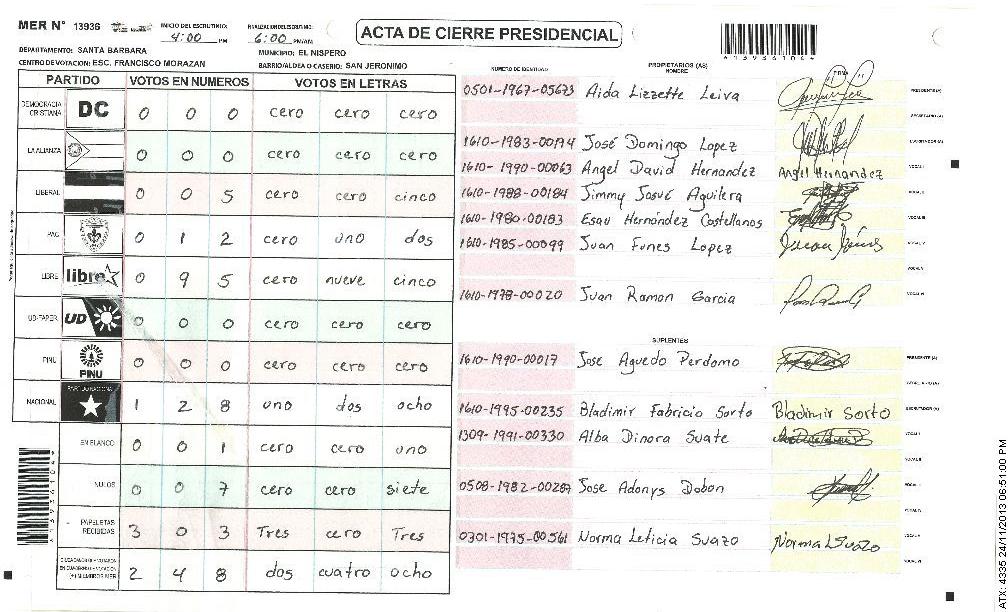 MER N° 13936
INICIO DEL ESCRUTINIO: 4:00 PM
FINALIZACION DEL ESCRUTINIO: 6:00 PM/AM
ACTA DE CIERRE PRESIDENCIAL
DEPARTAMENTO: SANTA BARBARA
MUNICIPIO: EL NISPERO
CENTRO DE VOTACION: ESC. FRANCISCO MORAZAN
BARRIO/ALDEA O CASERIO: SAN JERONIMO
PARTIDO VOTOS EN NUMEROS VOTOS EN LETRAS
DEMOCRACIA CRISTIANA DC 0 0 0 cero cero cero
LA ALIANZA 0 0 0 cero cero cero
LIBERAL 0 0 5 cero cero cinco
PAC 0 1 2 cero uno dos
LIBRE libre 0 9 5 cero nueve cinco
UD-FAPER UD 0 0 0 cero cero cero
PINU PINU 0 0 0 cero cero cero
NACIONAL PARTIDO NACIONAL 1 2 8 uno dos ocho
EN BLANCO 0 0 1 cero cero uno
NULOS 0 0 7 cero cero siete
PAPELETAS RECIBIDAS 3 0 3 Tres cero Tres
(+) MIEMBROS MER 2 4 8 dos cuatro ocho
NUMERO DE IDENTIDAD
PROPIETARIOS (AS)
NOMBRE
FIRMA
0501-1967-05673 Aida Lizzette Leiva PRESIDENTE (A)
SECRETARIO (A)
1610-1983-00194 José Domingo Lopez ESCRUTADOR (A)
1610-1990-00063 Angel David Hernandez Angel Hernandez VOCAL I
1610-1988-00184 Jimmy Josué Aguilera VOCAL II
1610-1980-00183 Esau Hernández Castellanos VOCAL III
1610-1985-00099 Juan Funes Lopez VOCAL IV
VOCAL V
1610-1978-00020 Juan Ramon Garcia VOCAL VI
SUPLENTES
1610-1990-00017 Jose Aguedo Perdomo PRESIDENTE (A)
SECRETARIO (A)
1610-1995-00235 Bladimir Fabricio Sorto Bladimir Sorto ESCRUTADOR (A)
1309-1991-00330 Alba Dinora Suate VOCAL I
VOCAL II
0508-1982-00287 Jose Adonys Dobon
VOCAL IV
0301-1975-00561 Norma Leticia Suazo Norma L Suazo VOCAL V
VOCAL VI
ATX: 4335 24/11/2013 06:51:00 PM